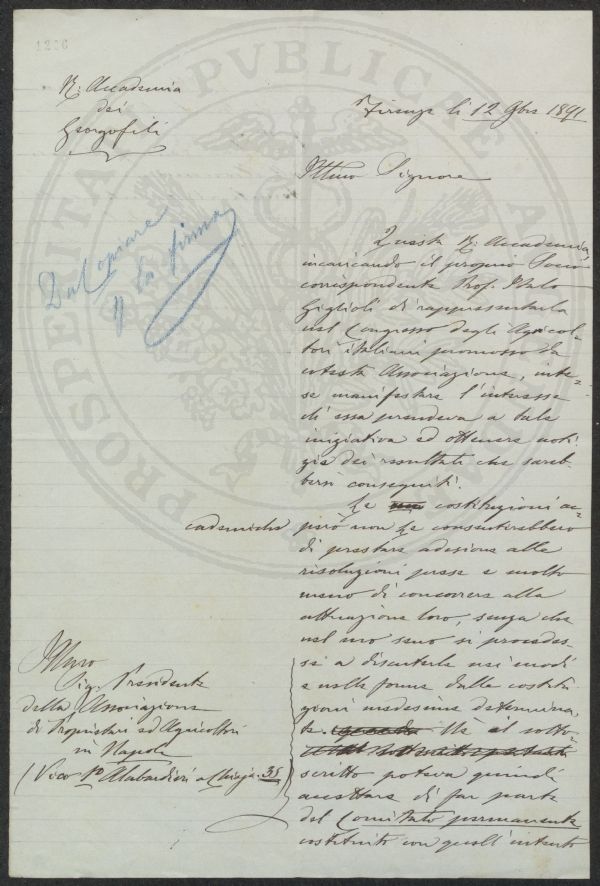 1206
R. Accademia
dei
Georgofili
Firenze li 12 9bre 1891
Illmo Signore
Da Copiare
la firma
Questa R. Accademia,
incaricando il proprio Socio
corrispondente Prof. Italo
Giglioli di rappresentarla
nel Congresso degli Agricol-
tori italiani promosso da
cotesta Associazione, inte-
se manifestare l'interesse
ch'essa prendeva a tale
iniziativa ed ottenere noti-
zia dei resultati che sareb-
bersi conseguiti.
Le costituzioni ac-
cademiche però non le consentirebbero
di prestare adesione alle
risoluzioni prese e molto
meno di concorrere alla
attuazione loro, senza che
nel suo seno si procedes-
se a discuterle nei modi
e nelle forme dalle costitu-
zioni medesime determina-
te. Nè il sotto-
scritto poteva quindi
accettare di far parte
del Comitato permanente
costituito con quell'intento
Illmo
Sig. Presidente
della Associazione
di Proprietari ed Agricoltori
in Napoli
(Vico 1º Alabardieri a Chiaja 35
PROSPERITA PVBLICAE